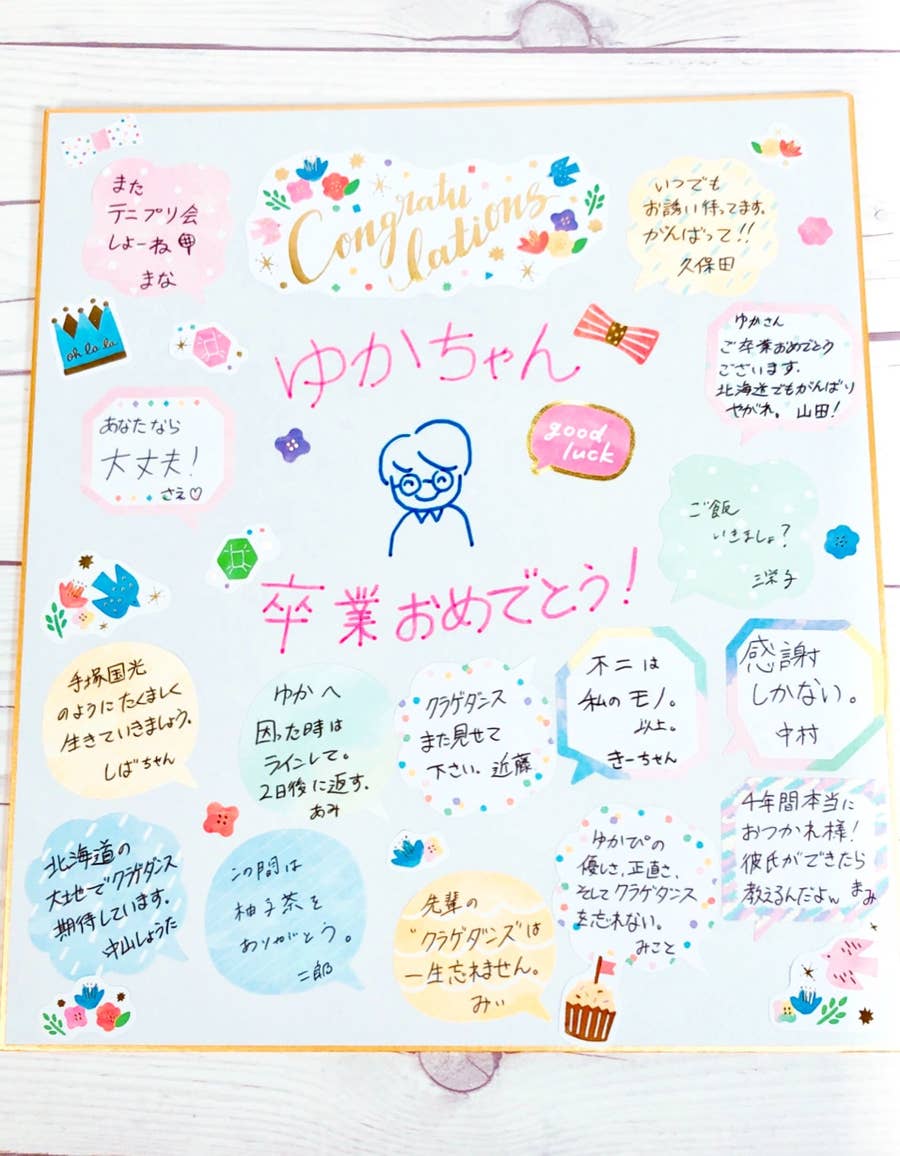 また
テニプリ会
しよーね
まな
Congratu
lations
いつでも
お誘い待ってます。
がんばって!!
久保田
oh la la
ゆかちゃん
ゆかさん
ご卒業おめでとう
ございます。
北海道でもがんばり
やがれ。 山田!
あなたなら
大丈夫!
さえ♡
good
luck
ご飯
いきましょ?
三栄子
卒業おめでとう!
手塚国光
のようにたくましく
生きていきましょう。
しばちゃん
ゆかへ
困った時は
ラインして。
2日後に返す。
あみ
クラゲダンス
また見せて
下さい。近藤
不二は
私のモノ。
以上。
きーちゃん
感謝
しかない。
中村
北海道の
大地でクラゲダンス
期待しています。
中山しょうた
この間は
柚子茶を
ありがとう。
二郎
先輩の
"クラゲダンス"は
一生忘れません。
みぃ
ゆかぴの
優しさ、正直さ、
そしてクラゲダンス
を忘れない。
みこと
4年間本当に
おつかれ様!
彼氏ができたら
教えるんだよw まみ